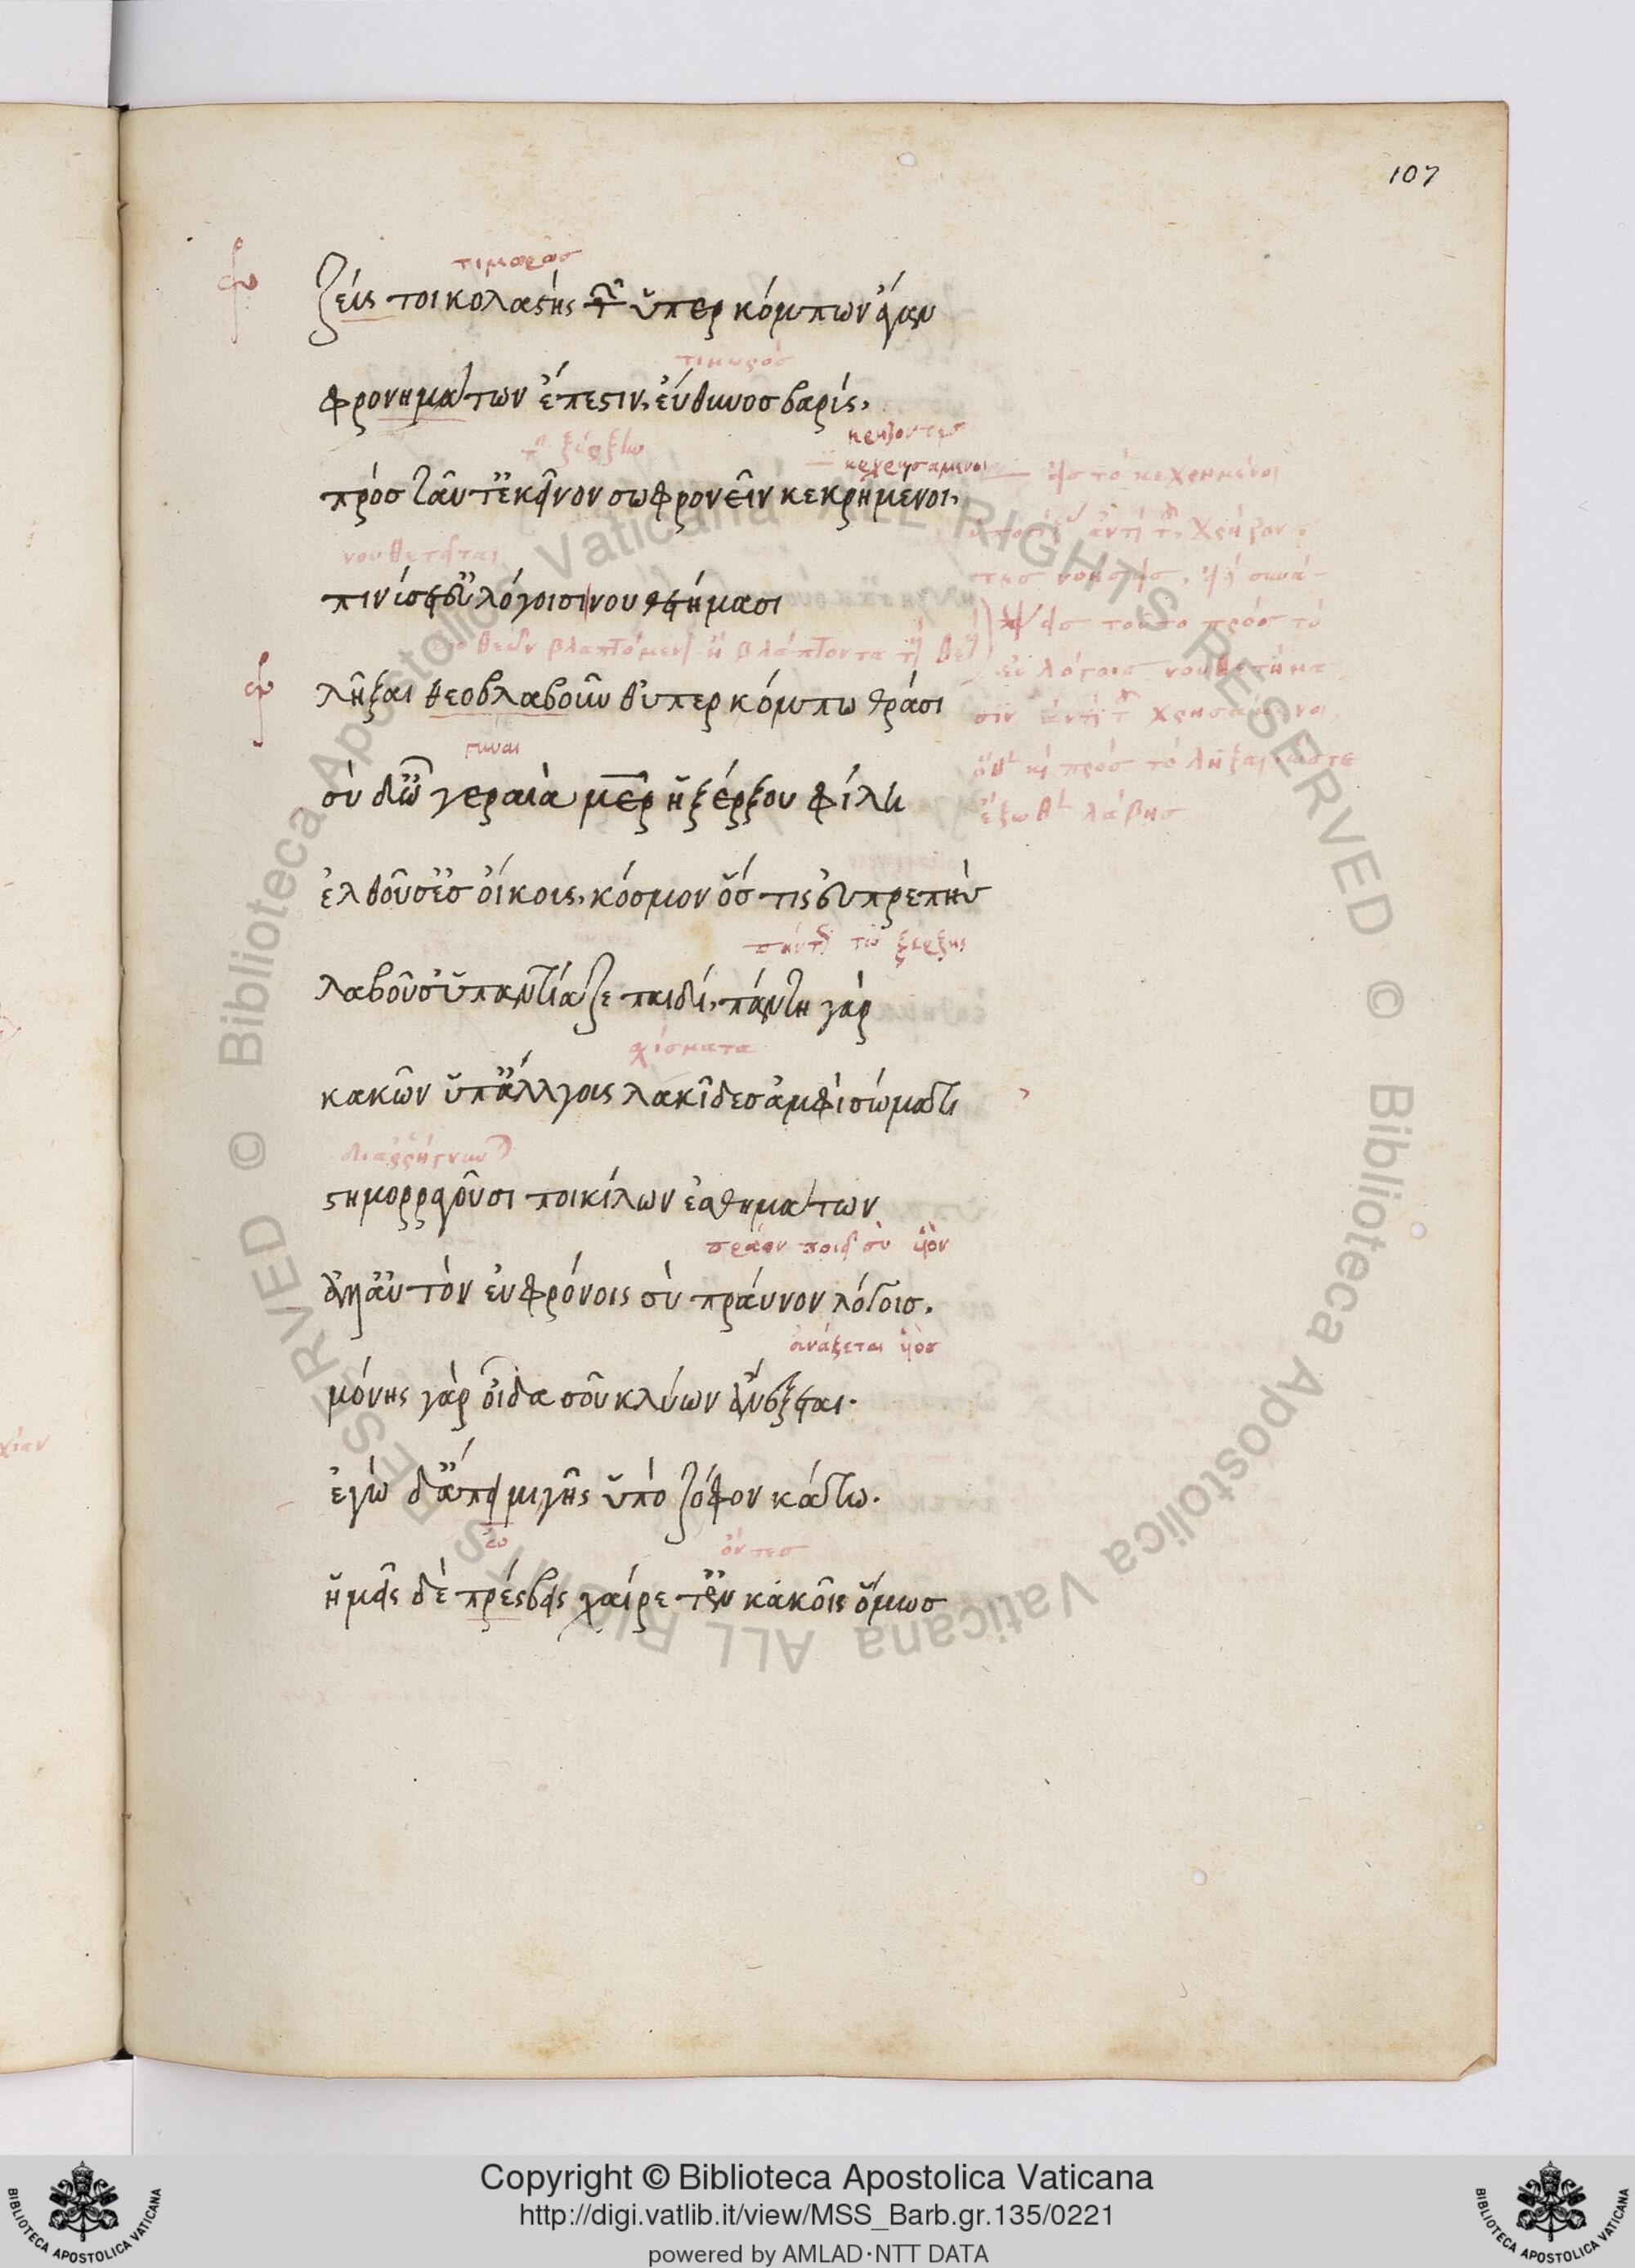 107
τιμωρὸς
ζεύς τοι κολαστὴς τῶν ὑπερκόμπων ἄγαν
τιμωρός
φρονημάτων ἔπεστιν, εὔθυνος βαρύς,
ξέρξην
χρήζοντες
κεχρησαμένοι
πρὸς ταῦτ' ἐκεῖνον σωφρονεῖν κεκρημένοι,
νουθετεῖται
πινύσκετ' εὐλόγοισι νουθετήμασι
λῆξαι θεοβλαβοῦνθ' ὑπερκόμπω θράσει
γύναι
σὺ δ' ὦ γεραιὰ μῆτερ ἡ ξέρξου φίλη
ἐλθοῦσ' ἐς οἴκους, κόσμον ὅστις εὐπρεπὴς
ξέρξης
λαβοῦσ' ὑπαντίαζε παιδί, πάντη γὰρ
σχίσματα
κακῶν ὑπ' ἄλγους λακίδες ἀμφὶ σώματι
στημορραγοῦσι ποικίλων ἐσθημάτων
πρᾶον ποίει σὺ υἱὸν
ἀλλ' αὐτὸν εὐφρόνοις σὺ πράυνον λόγοις.
ἀνάξεται υἱὸς
μόνης γὰρ οἶδα σοῦ κλύων ἀνέξεται.
ἐγὼ δ' ἄπειμι γῆς ὑπὸ ζόφον κάτω.
ὄντες
ὑμεῖς δὲ πρέσβεις χαίρετ' ἐν κακοῖς ὅμως
εἰς τὸ κεχρημένοι
ἀντὶ τοῦ χρήζον
τες
τοῦτο πρὸς τὸ
εὐλόγοις νουθετήμα
σιν ἀντὶ τοῦ χρησάμενοι
πρὸς τὸ λῆξαι ὥστε
ἔξωθεν λάβης
© Biblioteca Apostolica Vaticana ALL RIGHTS RESERVED © Biblioteca Apostolica Vaticana ALL RIGHTS RESERVED
Copyright © Biblioteca Apostolica Vaticana
http://digi.vatlib.it/view/MSS_Barb.gr.135/0221
powered by AMLAD·NTT DATA
BIBLIOTECA APOSTOLICA VATICANA
BIBLIOTECA APOSTOLICA VATICANA